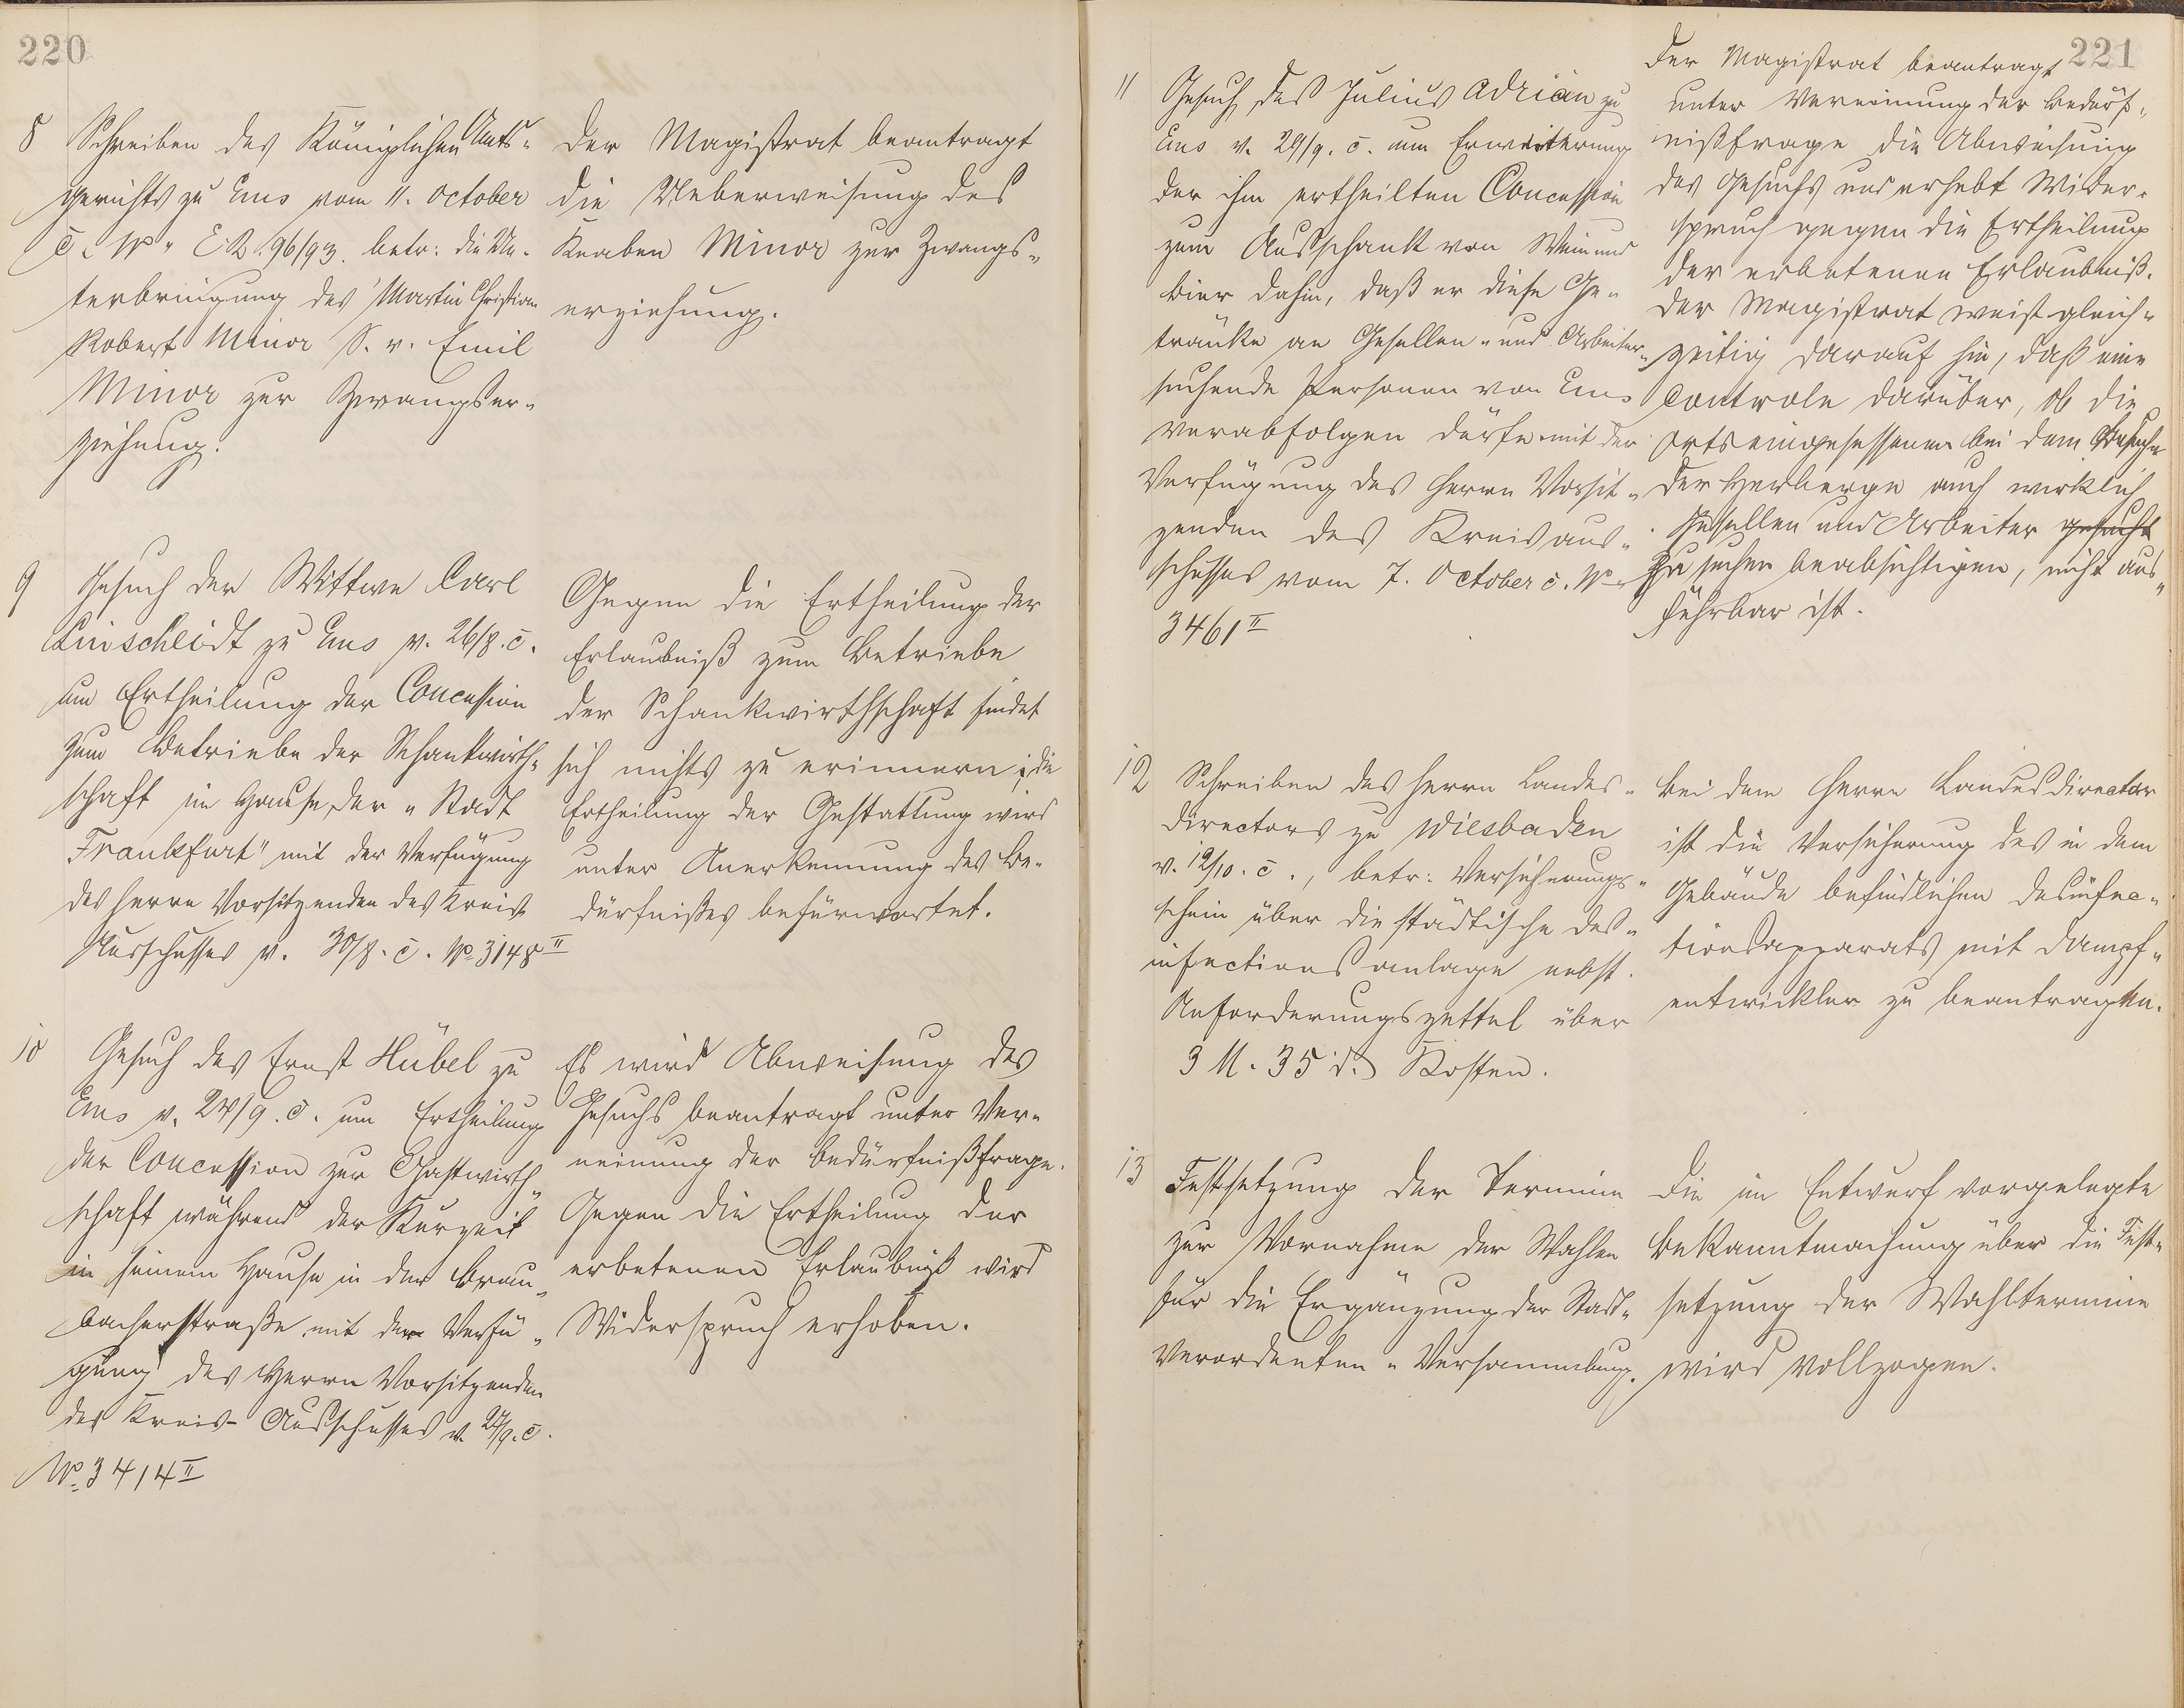 220
8 Schreiben des Königlichen Amts-
gerichts zu Ems vom 11. October
c. No. E. R. 96/93. betr: die Un-
terbringung des Martin Christian
Robert Minor S. v. Emil
Minor zur Zwangser-
ziehung.
Der Magistrat beantragt
die Ueberweisung des
Knaben Minor zur Zwangs-
erziehung.
9 Gesuch der Wittwe Carl
Linscheidt zu Ems v. 26/8. c.
um Ertheilung der Concession
zum Betriebe der Schankwirth-
schaft im Hause der "Stadt
Frankfurt" mit der Verfügung
des Herrn Vorsitzenden des Kreis
Ausschusses v. 30/8. c. No. 3148 II
Gegen die Ertheilung der
Erlaubniß zum Betriebe
der Schankwirthschaft findet
sich nichts zu erinnern; die
Ertheilung der Gestattung wird
unter Anerkennung des Be-
dürfnißes befürwortet.
10 Gesuch des Ernst Hübel zu
Ems v. 24/9. c. um Ertheilung
der Concession zur Gastwirth-
schaft während der Kurzeit
in seinem Hause in der Brau-
bacherstraße mit der Verfü-
gung des Herrn Vorsitzenden
des Kreis-Ausschusses v. 27/9. c.
No. 3414 II
Es wird Abweisung des
Gesuchs beantragt unter Ver-
neinung der Bedürfnißfrage.
Gegen die Ertheilung der
erbetenen Erlaubniß wird
Widerspruch erhoben.
221
11 Gesuch des Julius Adrian zu
Ems v. 29/9. c. um Erweiterung
der ihm ertheilten Concession
zum Ausschank von Wein und
Bier dahin, daß er diese Ge-
tränke an Gesellen- und Arbeiter-
suchende Personen von Ems
verabfolgen dürfe mit der
Verfügung des Herrn Vorsit-
zenden des Kreisaus-
schusses vom 7. October c. No.
3461 II
Der Magistrat beantragt
unter Verneinung der Bedürf-
nißfrage die Abweisung
des Gesuchs und erhebt Wider-
spruch gegen die Ertheilung
der erbetenen Erlaubniß.
Der Magistrat weist gleich-
zeitig darauf hin, daß eine
Controle darüber, ob die
Ortseingesessenen bei dem Besuche
der Herberge auch wirklich
Gesellen und Arbeiter gesucht
zu suchen beabsichtigen, nicht aus-
führbar ist.
12 Schreiben des Herrn Landes-
directors zu Wiesbaden
v. 12/10. c., betr: Versicherungs-
schein über die städtische Des-
infectionsanlage nebst
Anforderungszettel über
3 M. 35 d. Kosten.
Bei dem Herrn Landesdirector
ist die Versicherung des in dem
Gebäude befindlichen Desinfec-
tionsapparats mit Dampf-
entwickler zu beantragen.
13 Festsetzung der Termine
zur Vornahme der Wahlen
für die Ergänzung der Stadt-
verordneten-Versammlung.
Die im Entwurf vorgelegte
Bekanntmachung über die Fest-
setzung der Wahltermine
wird vollzogen.